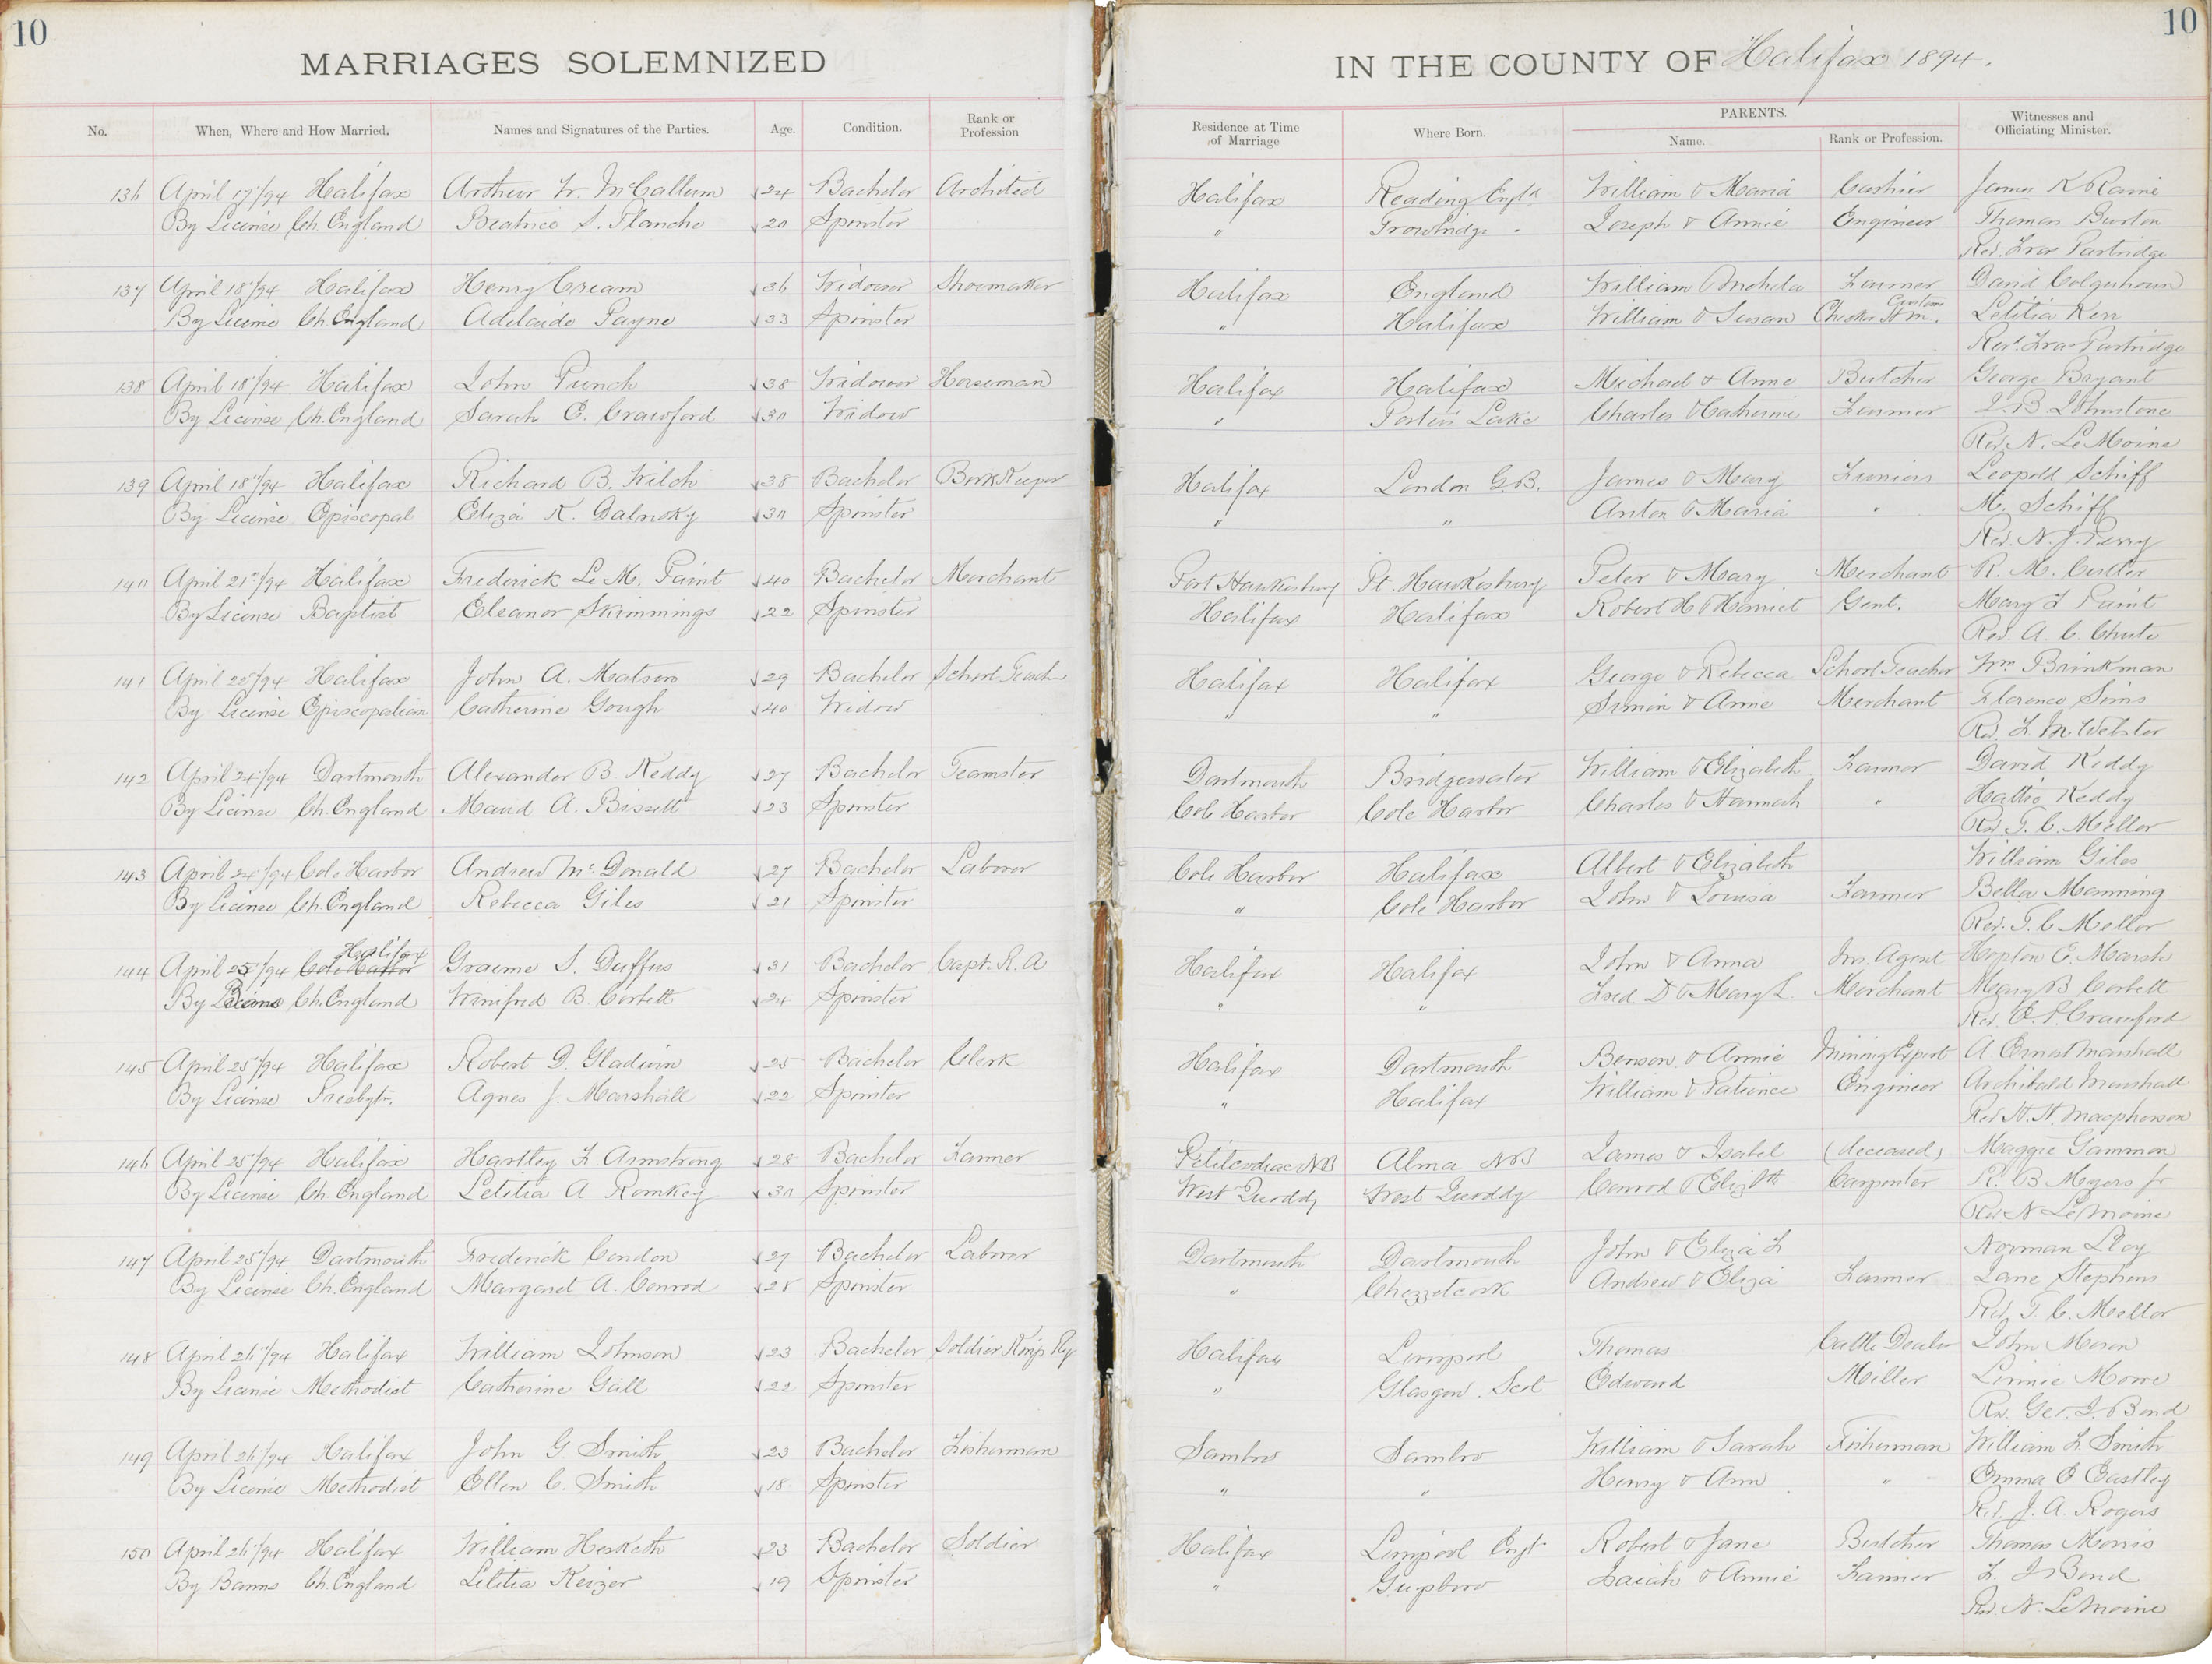 10
MARRIAGES SOLEMNIZED
No. When, Where and How Married. Names and Signatures of the Parties. Age. Condition. Rank or Profession
136 April 17"/94 Halifax Arthur W. McCallum 24 Bachelor Architect
By License Ch. England Beatrice S. Planche 20 Spinster
137 April 18"/94 Halifax Henry Cream 36 Widower Shoemaker
By License Ch. England Adelaide Payne 33 Spinster
138 April 18"/94 Halifax John Punch 38 Widower Horseman
By License Ch. England Sarah E. Crawford 30 Widow
139 April 18"/94 Halifax Richard B. 38 Bachelor Book Keeper
By License Episcopal Eliza K. Dalnoky 30 Spinster
140 April 21"/94 Halifax Frederick Le M. Paint 40 Bachelor Merchant
By License Baptist Eleanor Skimmings 22 Spinster
141 April 22"/94 Halifax John A. Matson 29 Bachelor School Teacher
By License Episcopalian Catherine Gough 40 Widow
142 April 24"/94 Dartmouth Alexander B. Keddy 27 Bachelor Teamster
By License Ch. England Maud A. Bissett 23 Spinster
143 April 24"/94 Cole Harbor Andrew McDonald 27 Bachelor Laborer
By License Ch. England Rebecca Giles 21 Spinster
Halifax
144 April 25"/94 Cole Harbor Graeme S. Duffus 31 Bachelor Capt. R. A
By License Ch. England Winifred B. Corbett 24 Spinster
145 April 25"/94 Halifax Robert D. Gladwin 25 Bachelor Clerk
By License Presbytr. Agnes J. Marshall 22 Spinster
146 April 25"/94 Halifax Hartley F. Armstrong 28 Bachelor Farmer
By License Ch. England Letitia A Romkey 30 Spinster
147 April 25"/94 Dartmouth Frederick Condon 27 Bachelor Laborer
By License Ch. England Margaret A. Conrod 28 Spinster
148 April 26"/94 Halifax William Johnson 23 Bachelor Soldier Kings Reg
By License Methodist Catherine Gall 22 Spinster
149 April 26"/94 Halifax John G. Smith 23 Bachelor Fisherman
By License Methodist Ellen C. Smith 18 Spinster
150 April 26"/94 Halifax William Hesketh 23 Bachelor Soldier
By Banns Ch. England Letitia Keizer 19 Spinster
10
IN THE COUNTY OF Halifax 1894.
Residence at Time of Marriage Where Born. PARENTS. Name. Rank or Profession. Witnesses and Officiating Minister.
Halifax Reading Engld William & Maria Cashier James K Raine
" Trowbridge Joseph & Annie Engineer Thomas Burton
Rev. Fras Partridge
Halifax England William Farmer David Colquhoun
" Halifax William & Susan Checker Customs Letitia Kerr
Rev. Fras Partridge
Halifax Halifax Michael & Anne Butcher George Bryant
" Porters Lake Charles & Catherine Farmer J. B. Johnstone
Rev. N. LeMoine
Halifax London G.B. James & Mary Leopold Schiff
" " Anton & Maria " M. Schiff
Rev. N. J. Perry
Port Hawkesbury Pt. Hawkesbury Peter & Mary Merchant R. M. Cutler
Halifax Halifax Robert H & Harriet Gent. Mary F Paint
Rev. A. C. Chute
Halifax Halifax George & Rebecca School Teacher Wm Brinkman
" " Simon & Annie Merchant Florence Sims
Rev. F. M. Webster
Dartmouth Bridgewater William & Elizabeth Farmer David Keddy
Cole Harbor Cole Harbor Charles & Hannah " Hattie Keddy
Rev T. C. Mellor
Cole Harbor Halifax Albert & Elizabeth William Giles
" Cole Harbor John & Louisa Farmer Bella Manning
Rev. T. C Mellor
Halifax Halifax John & Anna Ins. Agent Hopton E. Marsh
" " Fred. D & Mary L. Merchant Mary B Corbett
Rev. E. P. Crawford
Halifax Dartmouth Benson & Annie Mining Expert A Ernest Marshall
" Halifax William & Patience Engineer Archibald Marshall
Rev H. H. Macpherson
Petitcodiac NB Alma NB James & Isabel (deceased) Maggie Gammon
West Quoddy West Quoddy Conrod & Elizth Carpenter R. B Myers jr
Rev. N LeMoine
Dartmouth Dartmouth John & Eliza F Norman Lloy
" Chezzetcook Andrew & Eliza Farmer Jane Stephens
Rev. T. C. Mellor
Halifax Liverpool Thomas Cattle Dealer John Moren
" Glasgow. Scot Edward Miller Linnie Mowe
Rev. Geo. J. Bond
Sambro Sambro William & Sarah Fisherman William F. Smith
" " Henry & Ann " Emma E Eastley
Rev. J. A. Rogers
Halifax Liverpool Engl. Robert & Jane Butcher Thomas Morris
" Guysboro Isaiah & Annie Farmer F. J. Bond
Rev. N. LeMoine